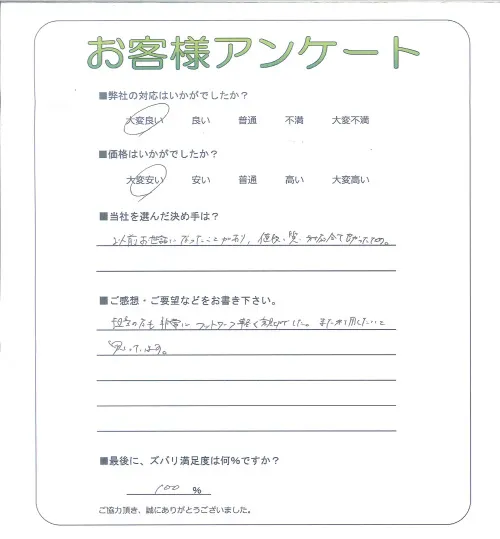 お客様アンケート
■弊社の対応はいかがでしたか？
大変良い 良い 普通 不満 大変不満
■価格はいかがでしたか？
大変安い 安い 普通 高い 大変高い
■当社を選んだ決め手は？
以前お世話になったことがあり、値段、
■ご感想・ご要望などをお書き下さい。
担当の方も非常にフットワーク軽く親切でした。また利用したいと
思っています。
■最後に、ズバリ満足度は何％ですか？
100 ％
ご協力頂き、誠にありがとうございました。